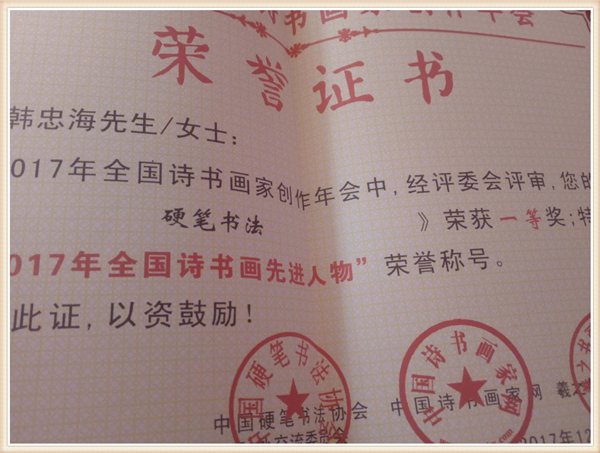 书画家创作年会
荣誉证书
韩忠海先生/女士:
017年全国诗书画家创作年会中,经评委会评审,您的
硬笔书法 》荣获一等奖;特
017年全国诗书画先进人物” 荣誉称号。
此证,以资鼓励!
中国硬笔书法协会
中国诗书画家网
中国硬笔书法协会 中国诗书画家网 羲
交流委员会
2017年12